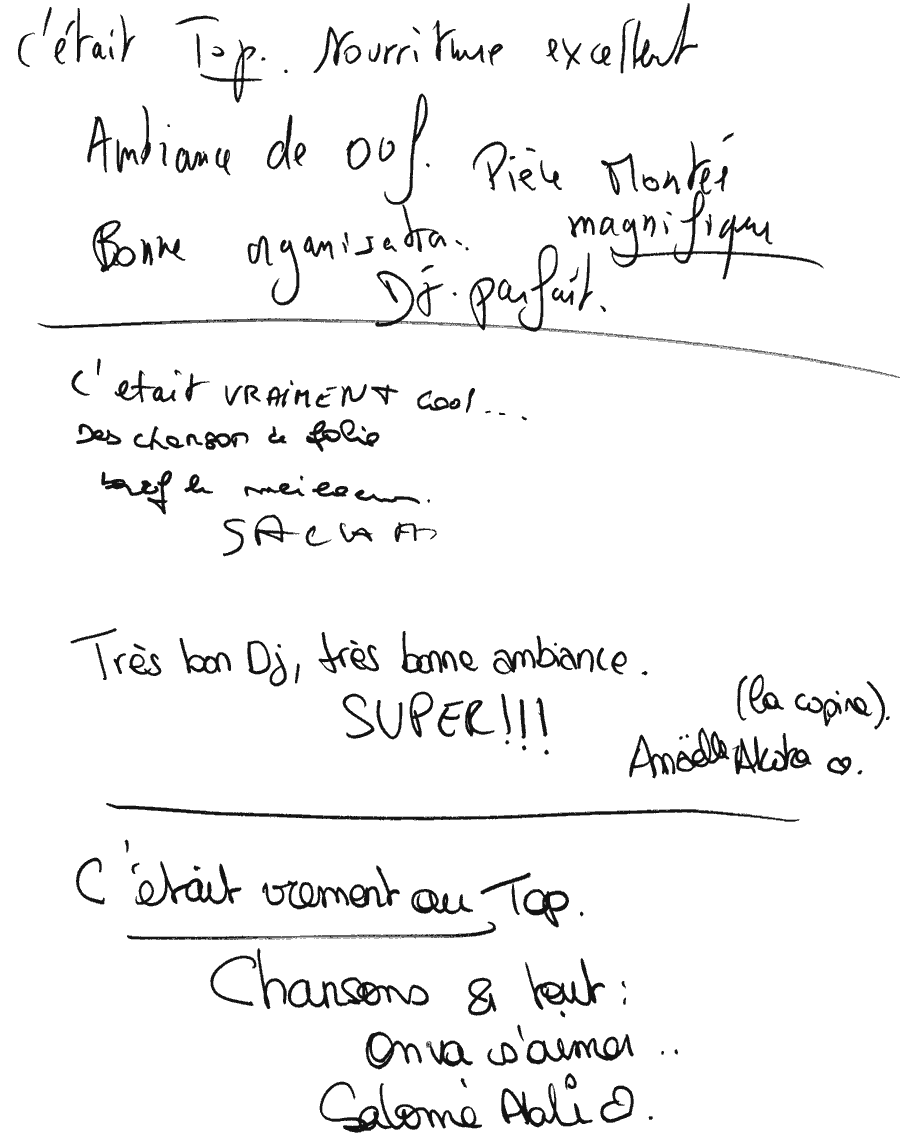 C'était Top. Nourriture excellent
Ambiance de oof. Pièce Montée
magnifique
Bonne organisation.
Dj. parfait.
C'etait VRAIMENT cool...
Des chanson de folie
bref le meilleur.
SACHA
Très bon Dj, très bonne ambiance.
SUPER!!!
(la copine).
Anaëlle Akoka
C'était vrement au Top.
Chansons & tout :
On va s'aimer ..
Salomé